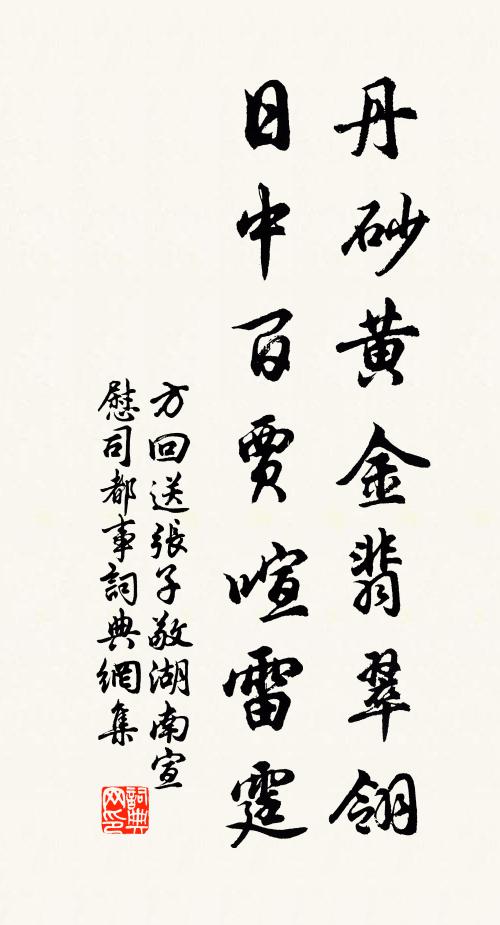 丹砂黃金翡翠翎
日中百賈喧雷霆
方回送張子敬湖南宣
慰司都事詞典網集
詞典
网印